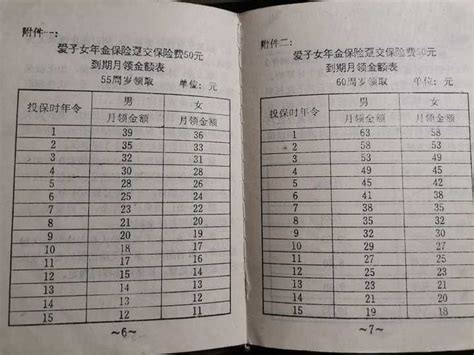 附件一：
爱子女年金保险趸交保险费50元
到期月领金额表
55周岁领取 单位：元
投保时年令 男 女
月领金额 月领金额
1 39 36
2 35 33
3 32 31
4 30 28
5 28 26
6 25 24
7 23 22
8 21 20
9 20 19
10 18 17
11 17 16
12 15 15
13 14 13
14 13 12
15 12 11
~6~
附件二：
爱子女年金保险趸交保险费50元
到期月领金额表
60周岁领取 单位：元
投保时年令 男 女
月领金额 月领金额
1 63 58
2 58 53
3 53 49
4 49 45
5 45 42
6 41 38
7 38 35
8 35 32
9 32 30
10 29 27
11 27 25
12 25 23
13 23 21
14 21 20
15 19 18
~7~